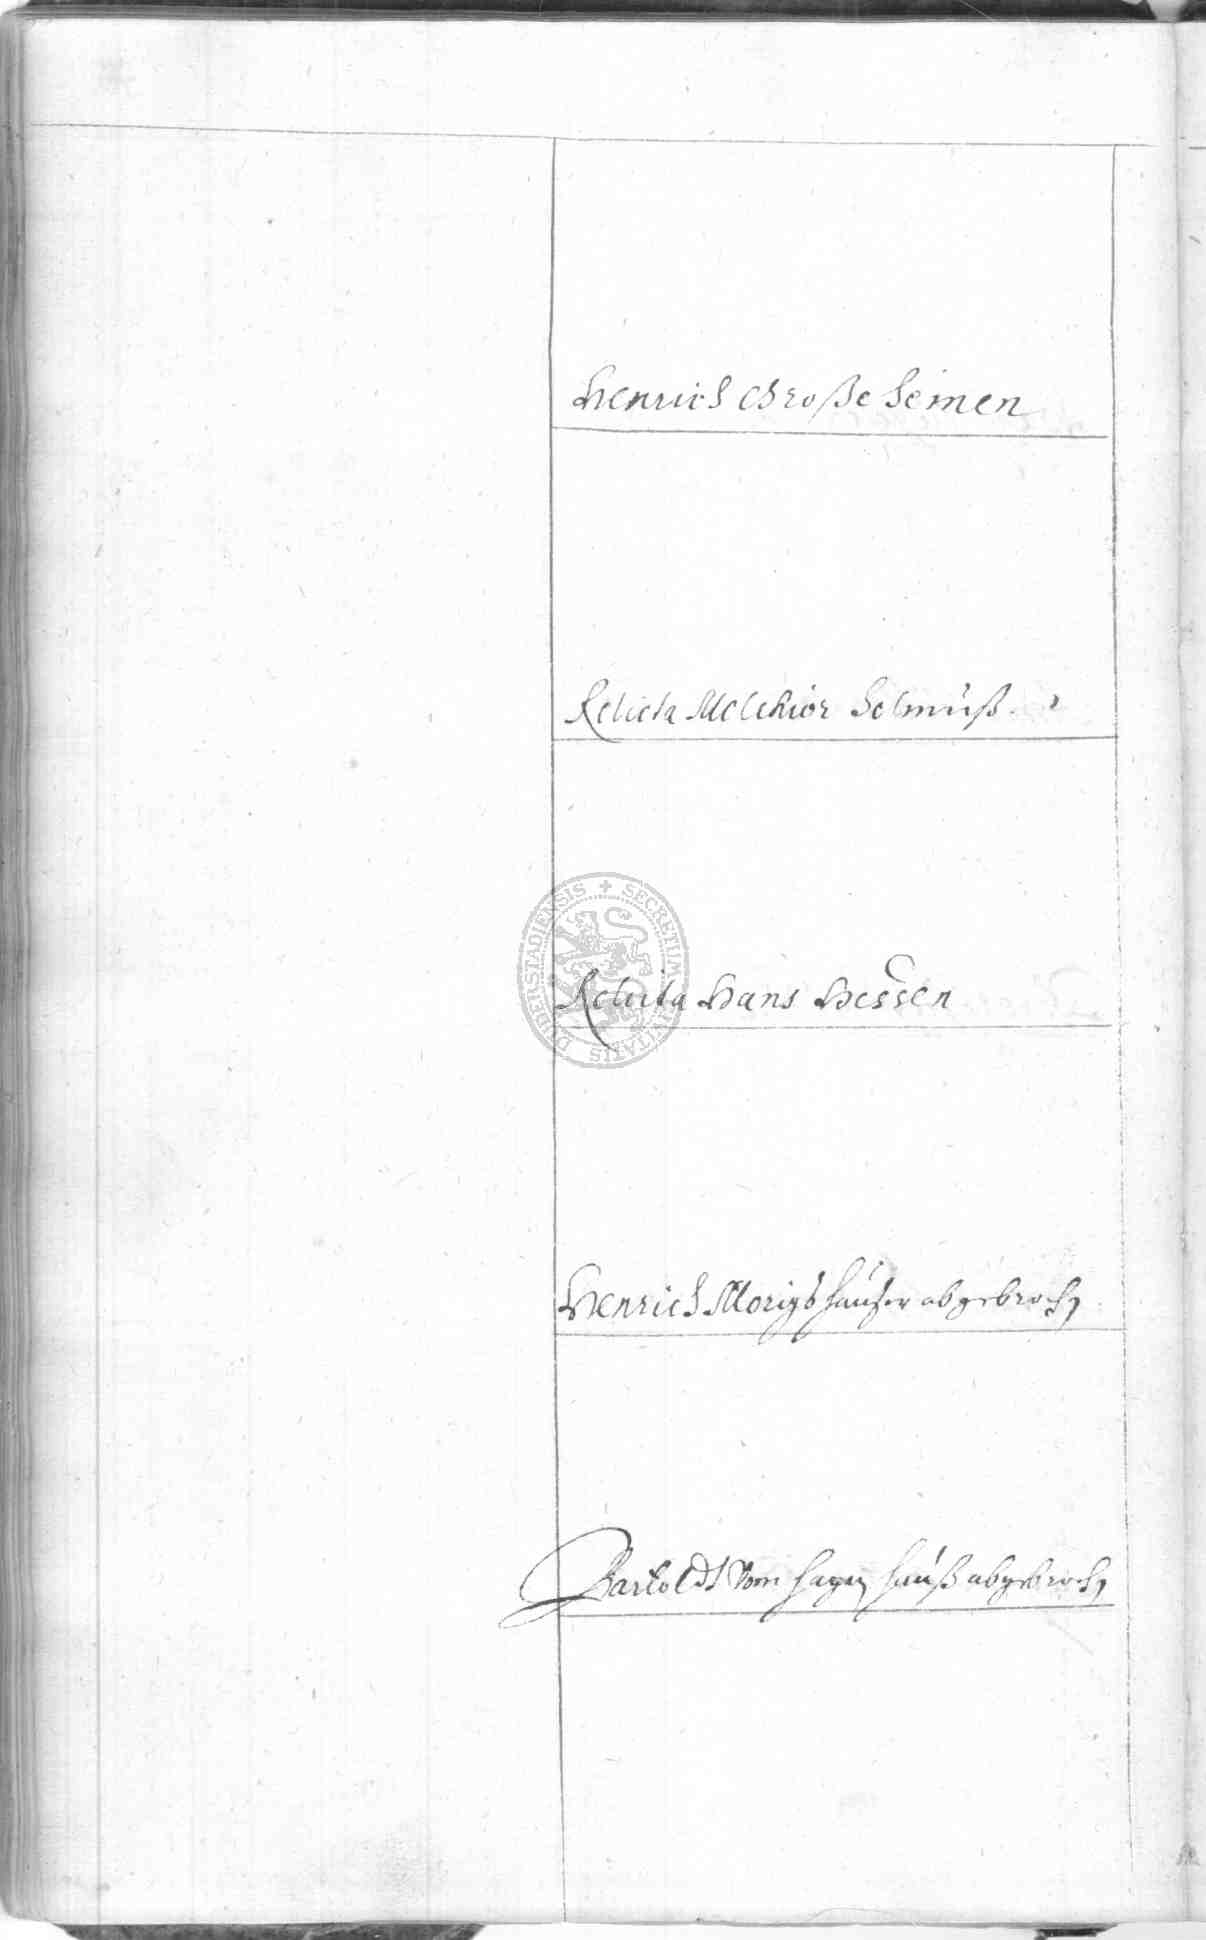 Henrich Große heinen
Relicta Melchior helmuß.
Relicta Hans Hessen
Henrich Morigs häußer abgebroch
Bartoldt Vom hagen hauß abgebroch
SECRETUM CIVITATIS DUDERSTADIENSIS